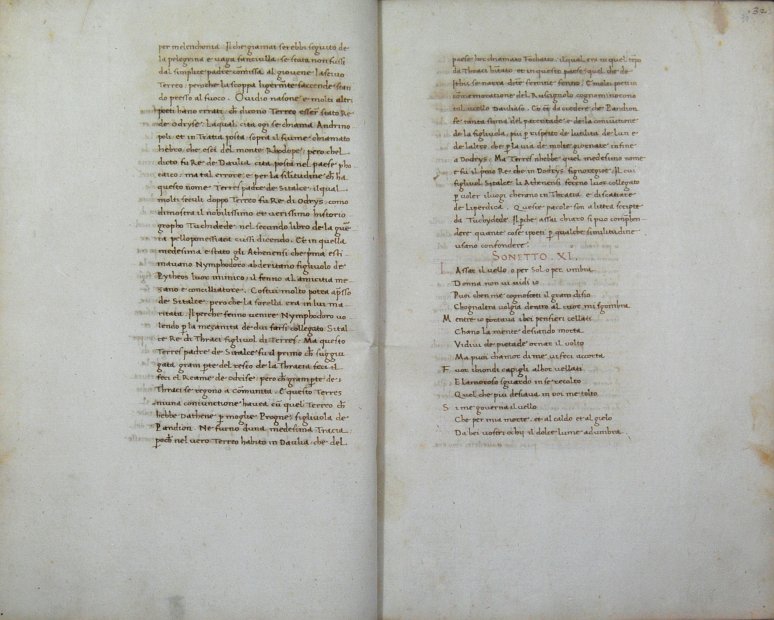 per melenchonia. Il che giamai serebbi seguito de
la pelegrina e vaga fanciulla. se stata non fussi
dal simplice padre cōmissa al giovene lascivo
Terreo. peroche la stoppa ligermēte saccende stan
do presso al fuoco. Ovidio nasone e molti altri
poeti hano errati. ch duono Terreo esser stato Re
de Odryse. Laqual cita ogi se chiama Andrino
poli. et in Tratia posta. sopra il fiume chiamato
hebro, che esce del monte Rhodope. pero chel
dicto fu Re de Daulia cita posta nel paese pho
caico. ma tal errore e per la silitudine ch ha
questo nome Terres padre de Sitalce. il qual
molti seculi doppo Terreo fu Re di Odrys. como
dimostra il nobilissimo et verissimo historio
grapho Tuchidede nel secundo libro de la gue
ra pelloponessiaca cussi dicendo. Et in quella
medesima estate gli Athenensi che prima esti
mavano Nymphodoro abderitano figliuolo de
Pytheos luor inimico. il fenno al amicitia me
zano e conciliatore. Costui molto potea apsso
de Sitalce. pero che la sorella era in lui ma
ritata. Il perche fenno venire Nymphodoro vo
lendo p la mezanita de dui farsi collegato Sital
ce Re di Thraci figliuol di Terres. Ma questo
Terres padre de Sitalce fu el primo ch suggiu
gata gram pte del resto de la Thracia feci il
feci el Reame de odrise. pero ch gram pte de
Thraci se regono a comunita. E questo Terres
niuna coniunctione havea cū quel Terreo ch
hebbe Dathene p moglie Progne figliuola de
Pandion. Ne furno duna medesima Tracia.
poch nel vero Terreo habito in Daulia. che del
32
paese hor chiamato Focharo. il qual era in quel tēpo
da Thraci bitato. et in questo paese quel che de
Ithis se narra dette femine fenno. E molti poeti in
cōmemoratione del Rusignolo cognominorono
tal ucello Dauliaso. Co e da credere che Pandion
se tanta fama del parentade. e de la coniunctione
de la figliuola. piu p rispetto de lutilita de lun e
de laltro. che p la via de molte giornate infine
a Odrys. Ma Terres nhebbe quel medesimo nome
e fu il primo Re che in Odrys signoregioe. Il cui
figliuol Sitalce li Athenensi fecino luor collegato
p voler i luogi cherano in Thracia. e discatiare
de Liperdica. Queste parole son a littera scripte
da Tuchydede. Il pche assai chiaro si puo compren
dere quante cose i poeti p qualche similitudine
usano confondere.
SONETTO. XI.
L Assar il uello o per Sol o per umbra
Donna non ui uidi io
Puoi chen me cognosceti il gram disio
Chognaltra uolgia dentro al cuor mi sgombra
M entre io portaua i bei pensieri cellati
Chano la mente desiando morta
Vidiui de pietade ornar il uolto
Ma puoi chamor di me ui feci accorta
F uor i biondi capigli alhor uellati
E lamoroso sguardo in se recolto
Quel che piu desiaua in uoi me tolto
S i me gouerna il uello
Che per mia morte. et al caldo et al gielo
Da bei uostri ochij il dolce lume adumbra.